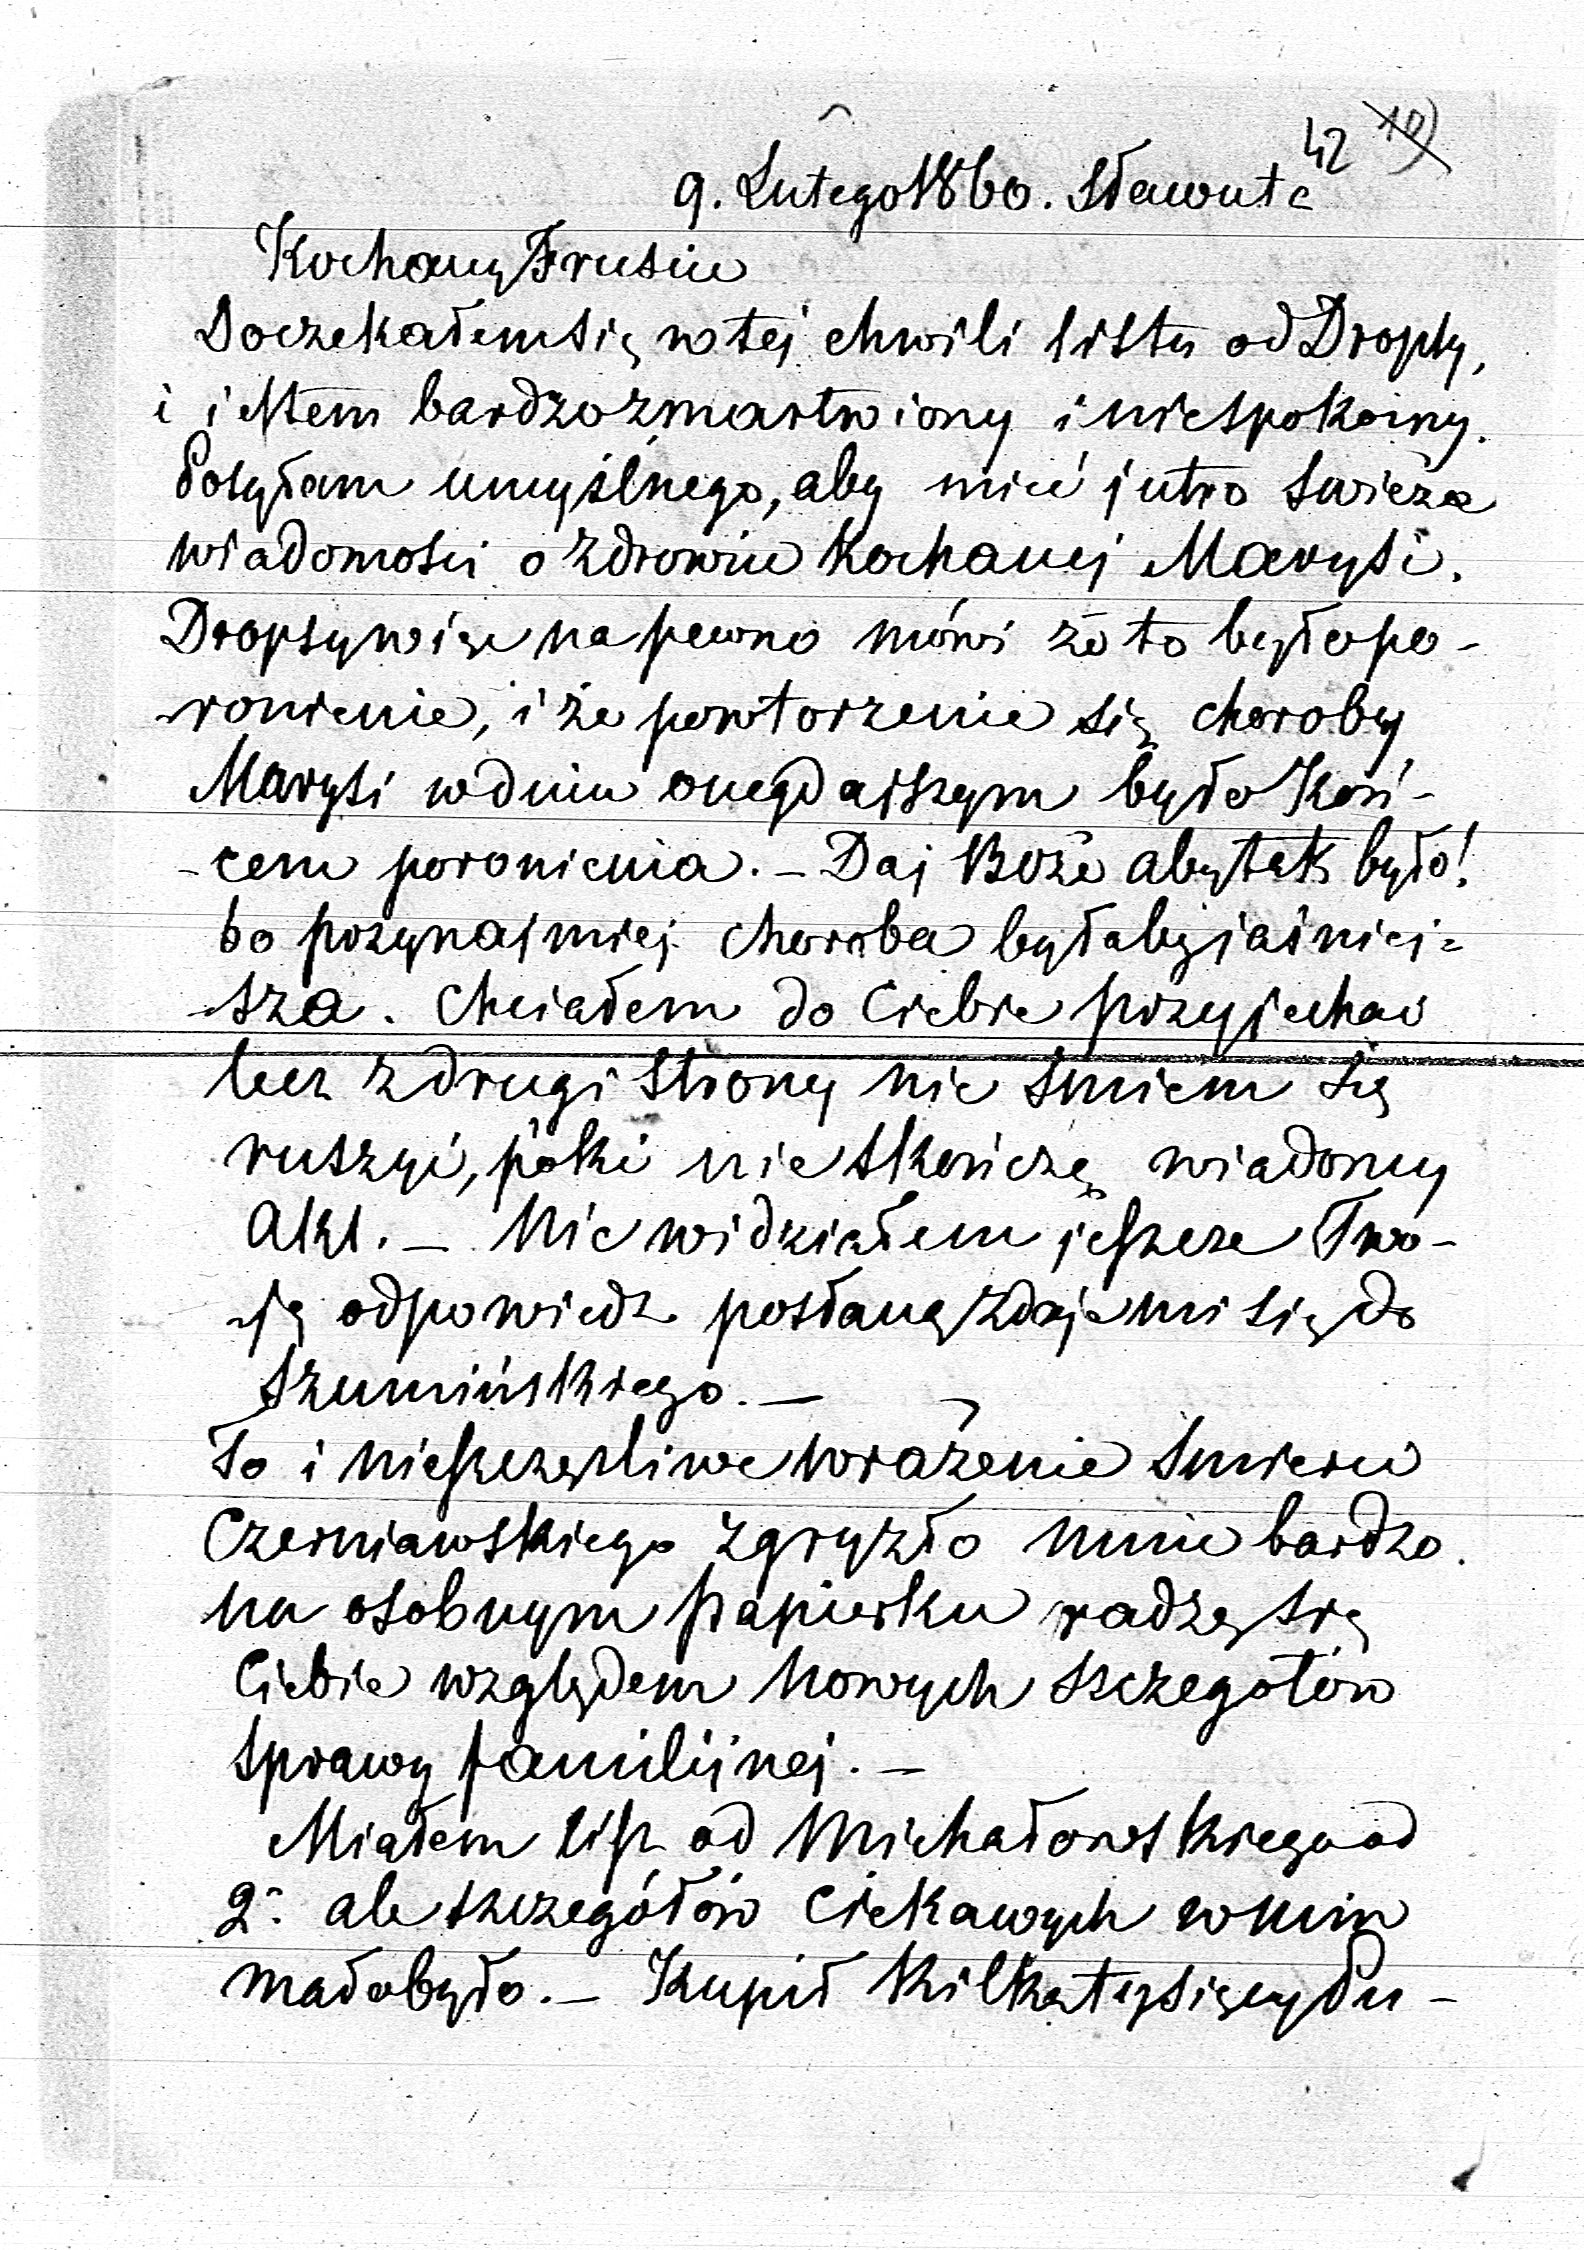 42 19)
9. Lutego 1860. Sławuta
Kochany Frusiu
Doczekałem się w tej chwili listu od Dropsy,
i jestem bardzo zmartwiony i niespokoiny.
Posyłam umyślnego, aby mieć jutro swieże
wiadomości o zdrowiu kochanej Marysi.
Dropsy więc na pewno mówi że to było po-
-ronienie, i że powtorzenie się choroby
Marysi w dniu onegdajszym było Koń-
-cem poronienia. – Daj Boże aby tak było!
bo przynajmniej choroba byłaby jaśniej=
-sza. Chciałem do Ciebie przyjechać
lecz z drugi strony nie smiem się
ruszyć, póki nie skończę wiadomy
Akt. – Nie widziałem jeszcze Two-
-ją odpowiedz posłaną zdaje mi się do
Szumińskiego. –
To i nieszczęsliwe wrażenie smierci
Czerniawskiego zgryzło mnie bardzo.
na osobnym papierku radzę się
Ciebie względem nowych szczegołów
sprawy familijnej. –
Miałem list od Michałowskiego od
2. ale szczegółów ciekawych w nim
mało było. – Kupił kilka tysięcy du-